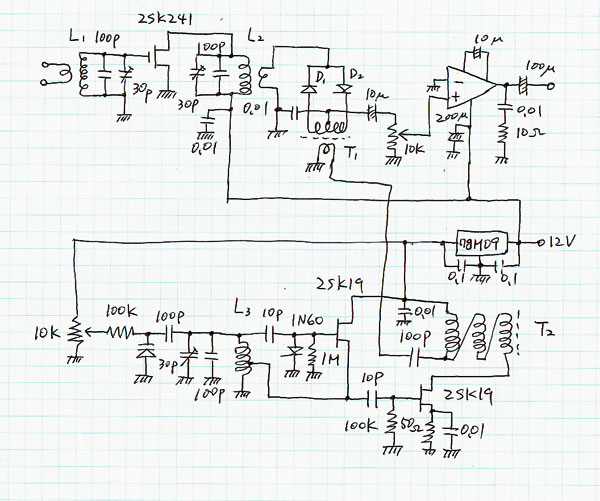 2SK241
L1 100p
100p L2
30p
30p
0.01
0.01
D1 D2
10μ
10K
T1
10μ
100μ
200μ
0.01
10Ω
78M09
12V
0.1 0.1
2SK19
0.01
100p
T2
10K
100K
100p
30p
100p
L3
10p
1N60
1M
10p
100K
2SK19
50Ω
0.01